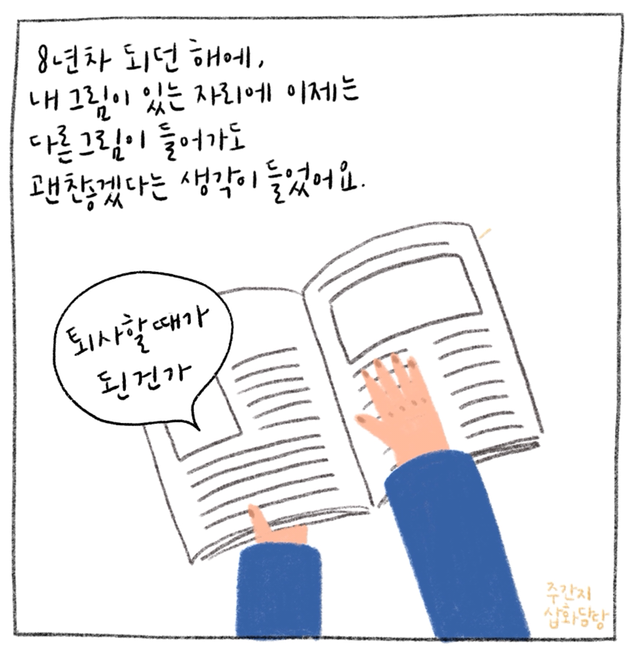 8년차 되던 해에,
내 그림이 있는 자리에 이제는
다른 그림이 들어가도
괜찮겠다는 생각이 들었어요.
퇴사할 때가
된 건가
주간지
삽화담당